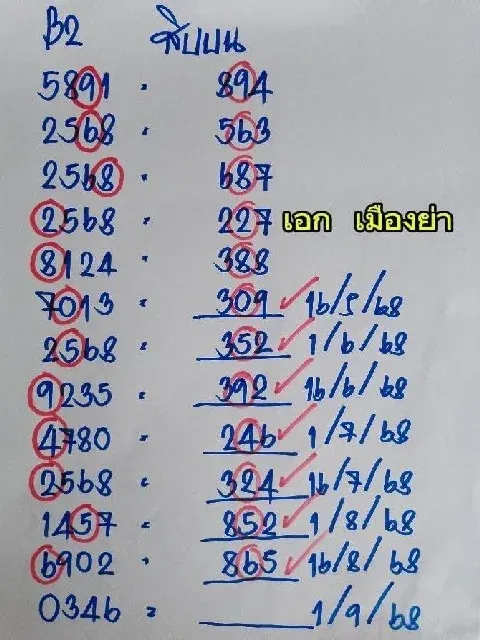 B2 สิบบน
5891 - 894
2568 - 563
2568 - 687
2568 - 227 เอก เมืองย่า
8124 - 388
7013 = 309 ✓ 16/5/68
2568 = 352 ✓ 1/6/68
9235 = 392 ✓ 16/6/68
4780 = 246 ✓ 1/7/68
2568 = 324 ✓ 16/7/68
1457 = 852 ✓ 1/8/68
6902 = 865 ✓ 16/8/68
0346 = ____ 1/9/68